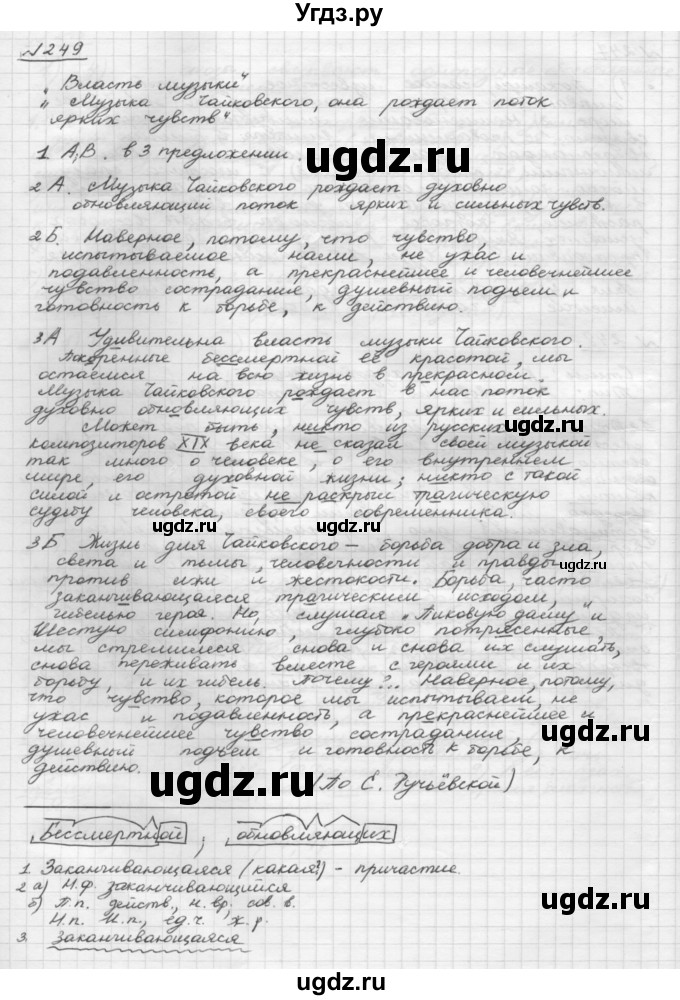 Угдз.ру
№249
„Власть музыки“
„Музыка Чайковского, она рождает поток
ярких чувств“
1 А,В. в 3 предложении.
ugdz.ru
2 А. Музыка Чайковского рождает духовно
обновляющий поток ярких и сильных чувств.
ugdz.ru
ugdz.ru
2Б. Наверное, потому, что чувство,
испытываемое нами, не ужас и
подавленность, а прекраснейшее и человечнейшее
чувство сострадания, душевный подъем и
готовность к борьбе, к действию.
ugdz.ru
3А Удивительна власть музыки Чайковского.
Покоренные бессмертной её красотой, мы
остаемся на всю жизнь в прекрасной.
ugdz.ru
Музыка Чайковского рождает в нас поток
духовно обновляющих чувств, ярких и сильных.
Может быть, никто из русских
ugdz.ru
композиторов XIX века не сказал своей музыкой
так много о человеке, о его внутреннем
мире, его духовной жизни; никто с такой
силой и остротой не раскрыл трагическую
судьбу человека, своего современника.
ugdz.ru
ugdz.ru
3Б Жизнь для Чайковского – борьба добра и зла,
света и тьмы, человечности и правды
против лжи и жестокости. Борьба, часто
заканчивающаяся трагическим исходом,
гибелью героя. Но, слушая „Пиковую даму“ и
ugdz.ru
Шестую симфонию, глубоко потрясенные,
мы стремимся снова и снова их слушать,
снова переживать вместе с героями и их
борьбу, и их гибель. Почему?.. Наверное, потому,
ugdz.ru
что чувство, которое мы испытываем, не
ужас и подавленность, а прекраснейшее и
человечнейшее чувство сострадания,
ugdz.ru
душевный подъем и готовность к борьбе, к
действию.
ugdz.ru
(По Е. Ручьёвской)
ugdz.ru
Бессмертной; обновляющих
1. Заканчивающаяся (какая?) – причастие.
2 а) Н.ф. заканчивающийся
б) П.п. действ., н. вр. сов. в.
Н.п. И.п., ед.ч. ж.р.
ugdz.ru
3. Заканчивающаяся
ugdz.ru
ugdz.ru